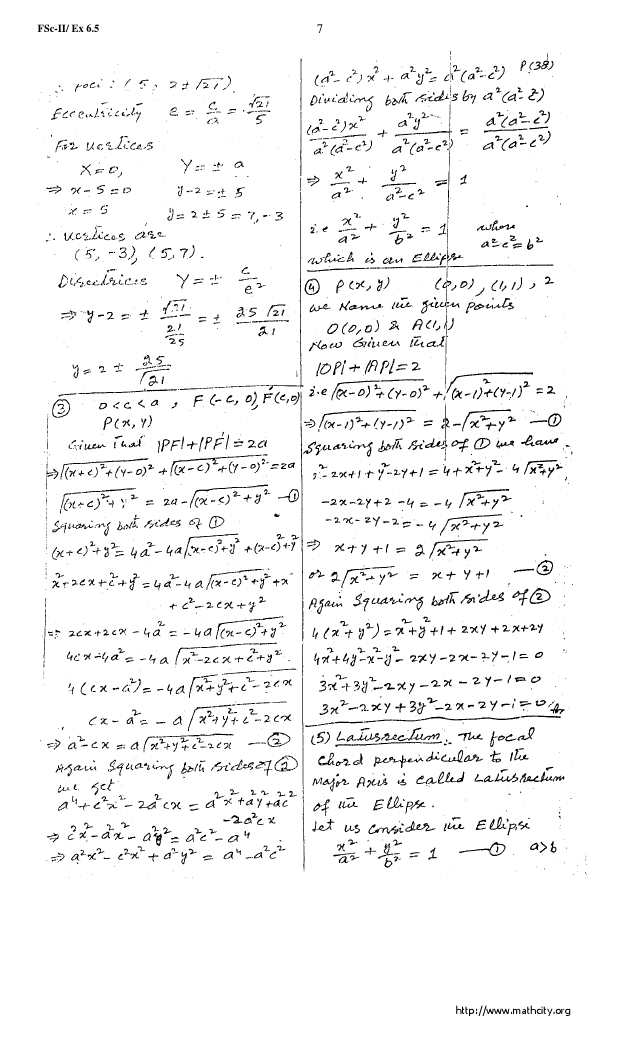 FSc-II/ Ex 6.5
7
∴ foci : (5, 2 ± √21).
Eccentricity e = c/a = √21/5
For vertices
X = 0, Y = ± a
⇒ x - 5 = 0 y - 2 = ± 5
x = 5 y = 2 ± 5 = 7, -3
∴ vertices are
(5, -3), (5, 7).
Directrices Y = ± c/e²
⇒ y - 2 = ± √21/(21/25) = ± 25√21/21
y = 2 ± 25/√21
③ 0 < c < a, F(-c, 0), F'(c, 0)
P(x, y)
Given That |PF| + |PF'| = 2a
⇒ √((x+c)²+(y-0)²) + √((x-c)²+(y-0)²) = 2a
√((x+c)²+y²) = 2a - √((x-c)²+y²) —①
Squaring both sides of ①
(x+c)²+y² = 4a² - 4a√((x-c)²+y²) + (x-c)²+y²
x²+2cx+c²+y² = 4a² - 4a√((x-c)²+y²) + x²
+ c² - 2cx + y²
⇒ 2cx + 2cx - 4a² = -4a√((x-c)²+y²)
4cx - 4a² = -4a√(x²-2cx+c²+y²)
4(cx - a²) = -4a√(x²+y²+c²-2cx)
cx - a² = -a√(x²+y²+c²-2cx)
⇒ a² - cx = a√(x²+y²+c²-2cx) —②
Again Squaring both sides of ②
we get
a⁴ + c²x² - 2a²cx = a²x² + a²y² + a²c²
- 2a²cx
⇒ c²x² - a²x² - a²y² = a²c² - a⁴
⇒ a²x² - c²x² + a²y² = a⁴ - a²c²
(a² - c²)x² + a²y² = a²(a² - c²) P(38)
Dividing both sides by a²(a² - c²)
(a²-c²)x²/a²(a²-c²) + a²y²/a²(a²-c²) = a²(a²-c²)/a²(a²-c²)
⇒ x²/a² + y²/(a²-c²) = 1
i.e x²/a² + y²/b² = 1 where
a²-c² = b²
which is an Ellipse
④ P(x, y) (0,0), (1,1), 2
we Name the given points
O(0,0) & A(1,1)
Now Given That
|OP| + |AP| = 2
i.e √((x-0)²+(y-0)²) + √((x-1)²+(y-1)²) = 2
⇒ √((x-1)²+(y-1)²) = 2 - √(x²+y²) —①
Squaring both sides of ① we have
x²-2x+1+y²-2y+1 = 4+x²+y² - 4√(x²+y²)
-2x-2y+2-4 = -4√(x²+y²)
-2x-2y-2 = -4√(x²+y²)
⇒ x+y+1 = 2√(x²+y²)
or 2√(x²+y²) = x+y+1 —②
Again Squaring both sides of ②
4(x²+y²) = x²+y²+1+2xy+2x+2y
4x²+4y²-x²-y²-2xy-2x-2y-1=0
3x²+3y²-2xy-2x-2y-1=0
3x²-2xy+3y²-2x-2y-1=0
(5) Latusrectum: The focal
Chord perpendicular to the
Major Axis is called Latusrectum
of the Ellipse.
Let us consider the Ellipse
x²/a² + y²/b² = 1 —① a>b
http://www.mathcity.org